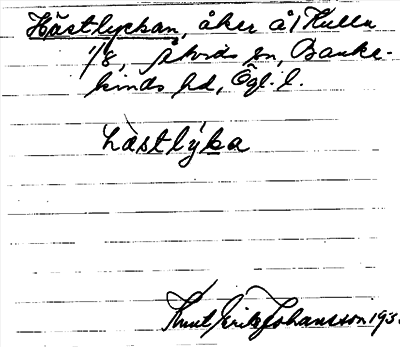 Hästlyckan, åker å Kulla
1/8, Skvids sn, Banke-
kinds hd, Ögl. l.
hàstlýka
Knut Erik Johansson 193